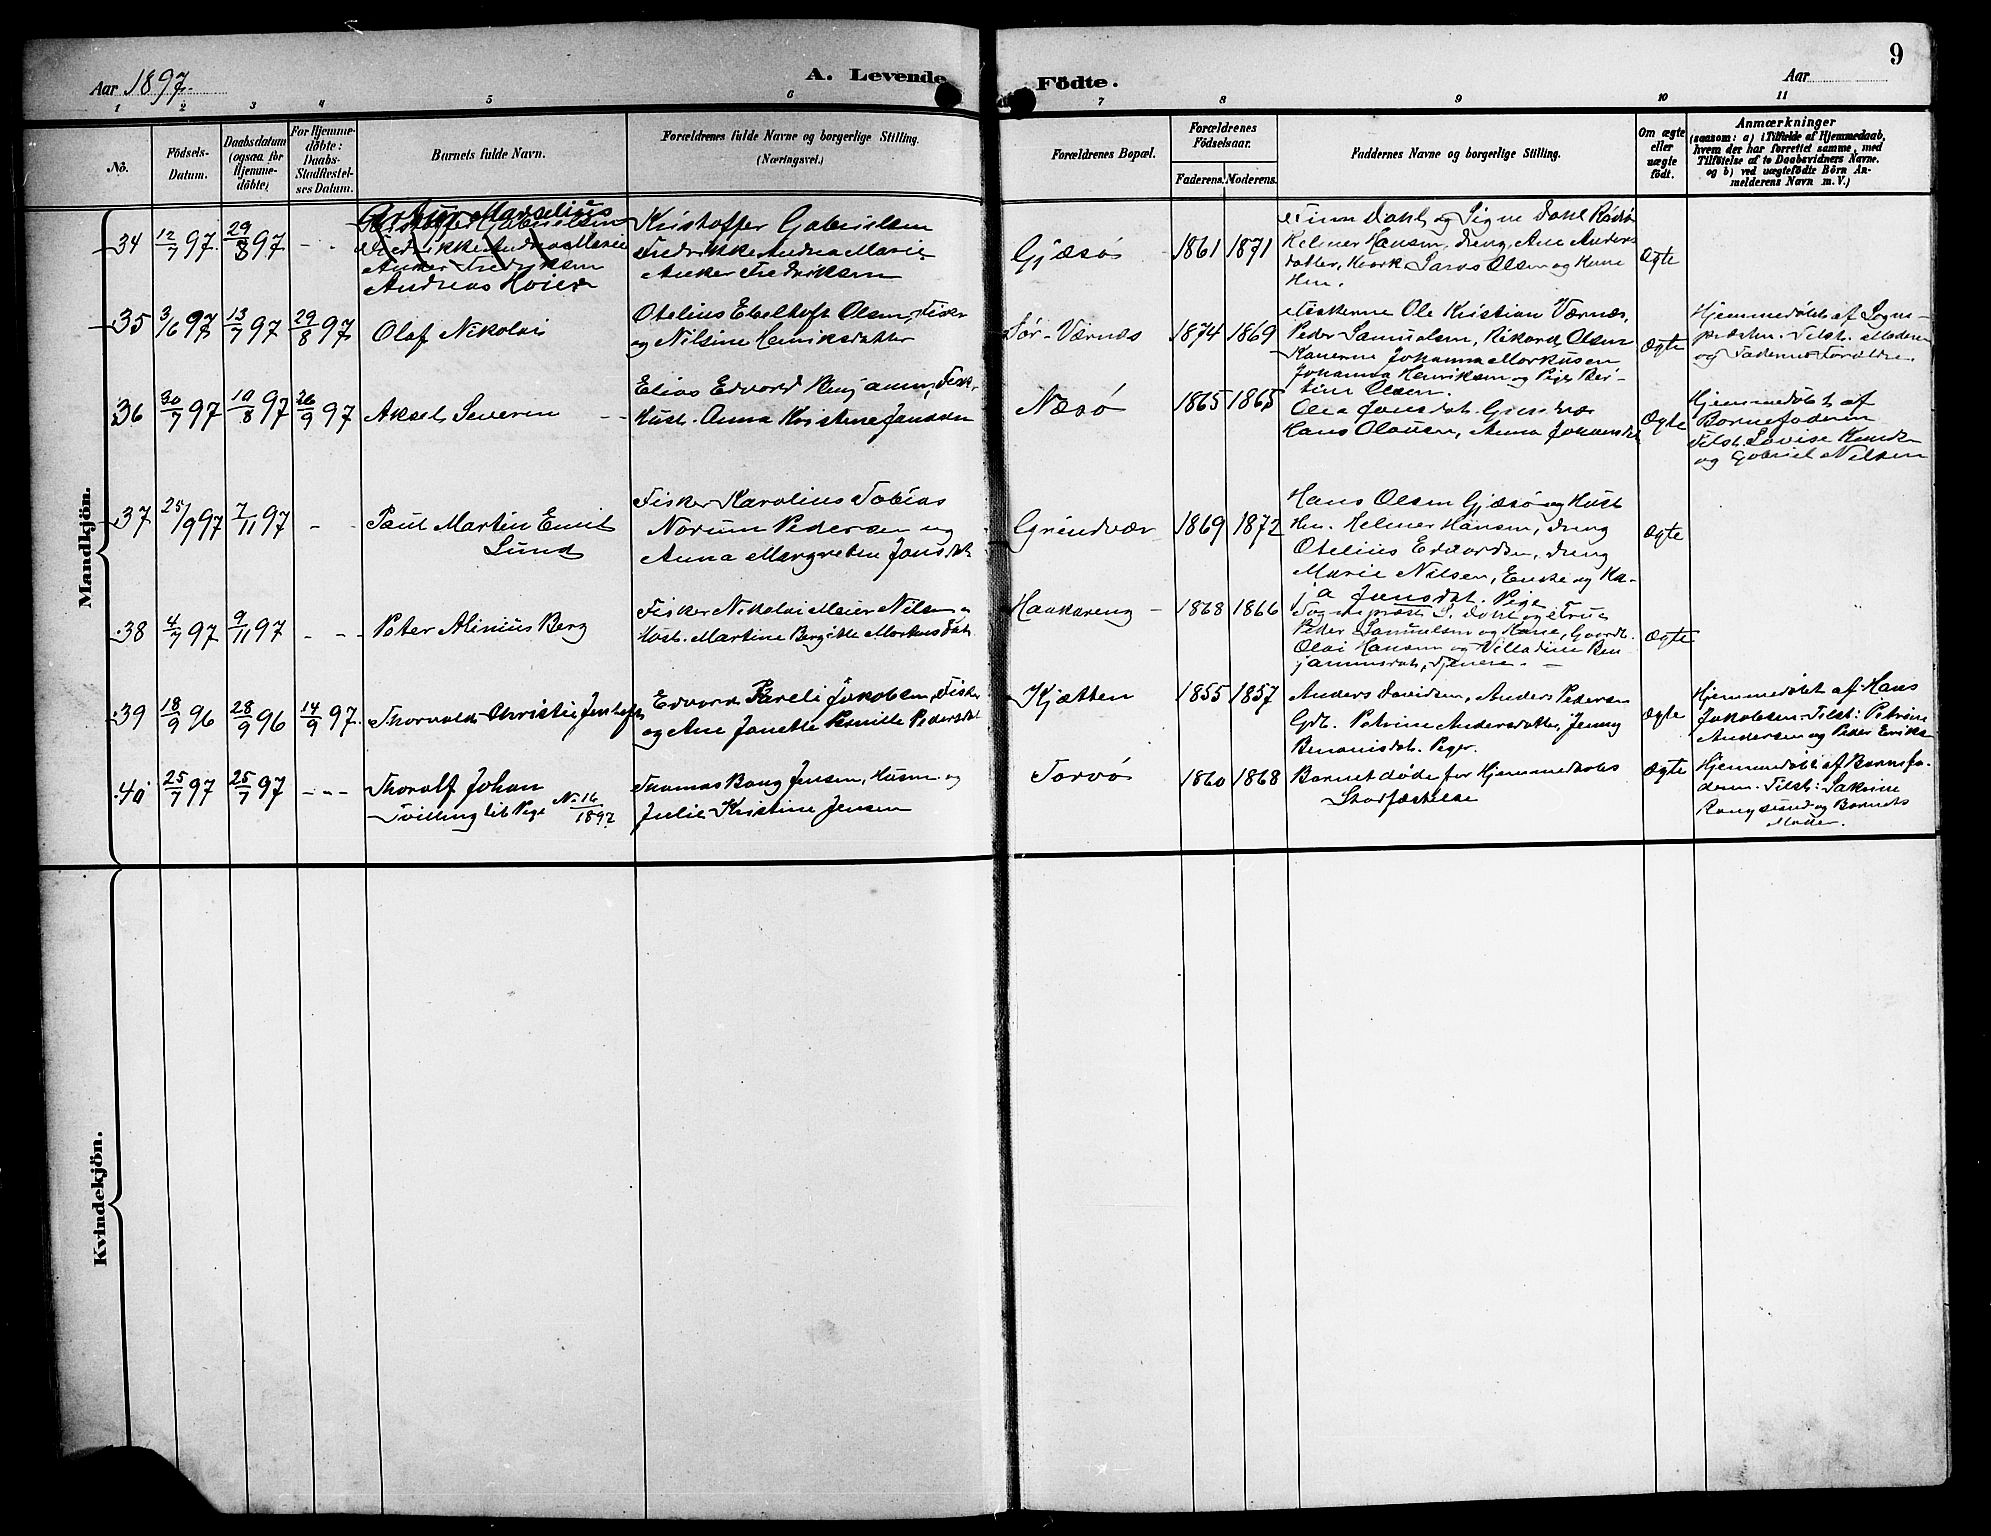 9
Aar 1897.
A. Levende
Födte.
Aar
1 2 3 4 5 6 7 8 9 10 11
No.
Födsels-
Datum.
Daabsdatum
(ogsaa för
Hjemme-
döbte).
For Hjemme-
döbte:
Daabs-
Stadfæstel-
ses Datum.
Barnets fulde Navn.
Forældrenes fulde Navne og borgerlige Stilling.
(Næringsvei.)
Forældrenes Bopæl.
Forældrenes
Födselsaar.
Faderens. Moderens.
Faddernes Navne og borgerlige Stilling.
Om ægte
eller
uægte
födt.
Anmærkninger
(saasom: a) i Tilfælde af Hjemmedaab,
hvem der har forrettet samme, med
Tilföielse af to Daabsvidners Navne.
og b) ved uægtefödte Börn An-
melderens Navn m. V.)
Mandkjön.
34
12/7 97.
29/8 97
- -
Artur Marselius
Kristoffer Gabrielsen
Fredrikke Andrea Marie
Anker Fredriksen
Andreas Hoier
Kristoffer Gabrielsen
Fredrikke Andrea Marie
Anker Fredriksen
Gjæsø
1861 1871
Finn Dahl og Signe Dahl Rødø
Helmer Hansen, dreng, Ane Anders
datter, Lars Olsen og Kone
Hm.
Ægte
35
3/6 97
13/7 97
29/8 97
Olaf Nikolai
Otelius Ebeltoft Olsen, Fisker
og Nilsine Henriksdatter
Sør-Værnes
1874 1869
Fiskerne Ole Kristian Værnæs,
Peder Samuelsen, Rikard Olsen
Konerne Johanna Markusen
Johanna Henriksen og Pige Ber-
tine Olsen.
Ægte
Hjemmedøbt af Sogne-
præsten. Tilst. Moderen
og Faderens Forældre.
36
30/7 97
10/8 97
26/9 97
Aksel Severin - -
Elias Edvard Benjamins, Fisk.
Hust. Anna Kristine Jansdat
Næsø
1865 1865
Olea Jansdat. Grindvær
Hans Olausen, Anna Johansdat
Ægte
Hjemmedøbt af
Barnefaderen
Tilst. Lovise Knudsen
og Gabriel Nilsen
37
25/9 97
7/11 97
- -
Paul Martin Emil
Lund
Fisker Karolius Tobias
Norum Pedersen og
Anna Margrethe Jansdat
Grindvær
1869 1872
Hans Olsen Gjæsø og Hust
Hm. Helmer Hansen, dreng
Otelius Edvardsen, dreng
Marie Nilsen, Enke og Ka-
ja Jansdat. Pige
Ægte
38
4/7 97
9/11 97
- - -
Peter Alinius Berg
Fisker Nikolai Meier Nilsen og
Hust. Martine Bergitte Markusdat.
Haakareng -
1868 1866
Sognepræst S. Dahl og Frue
Peder Samuelsen og Kone, Gaardb.
Olai Hansen og Villadine Ben-
jaminsdat., tjenere. -
Ægte
39
18/9 96
28/9 96
14/9 97.
Thorvald Christie Jenhoft
Edvard Pareli Jakobsen, Fisker
og Ane Janette Pernille Pedersdat
Kjætten
1855 1857
Anders Davidsen, Anders Pedersen
Gdb. Petrine Andersdatter, Jenny
Benonisdat. Piger.
Ægte
Hjemmedøbt af Hans
Jakobsen. Tilst: Petrine
Andersen og Peder Eriks.
40
25/7 97
25/7 97
- - -
Thoralf Johan
Tvilling til Pige No 16/1897
Thomas Bang Jensen, Husm. og
Julie Kristine Jensen
Torvø
1860 1868
Barnet døde før Hjemmedaabs
Stadfæstelse
Ægte
Hjemmedøbt af Barnefa-
deren. Tilst: Sakrine
Rangsund og Barnets
Moder.
Kvindekjön.